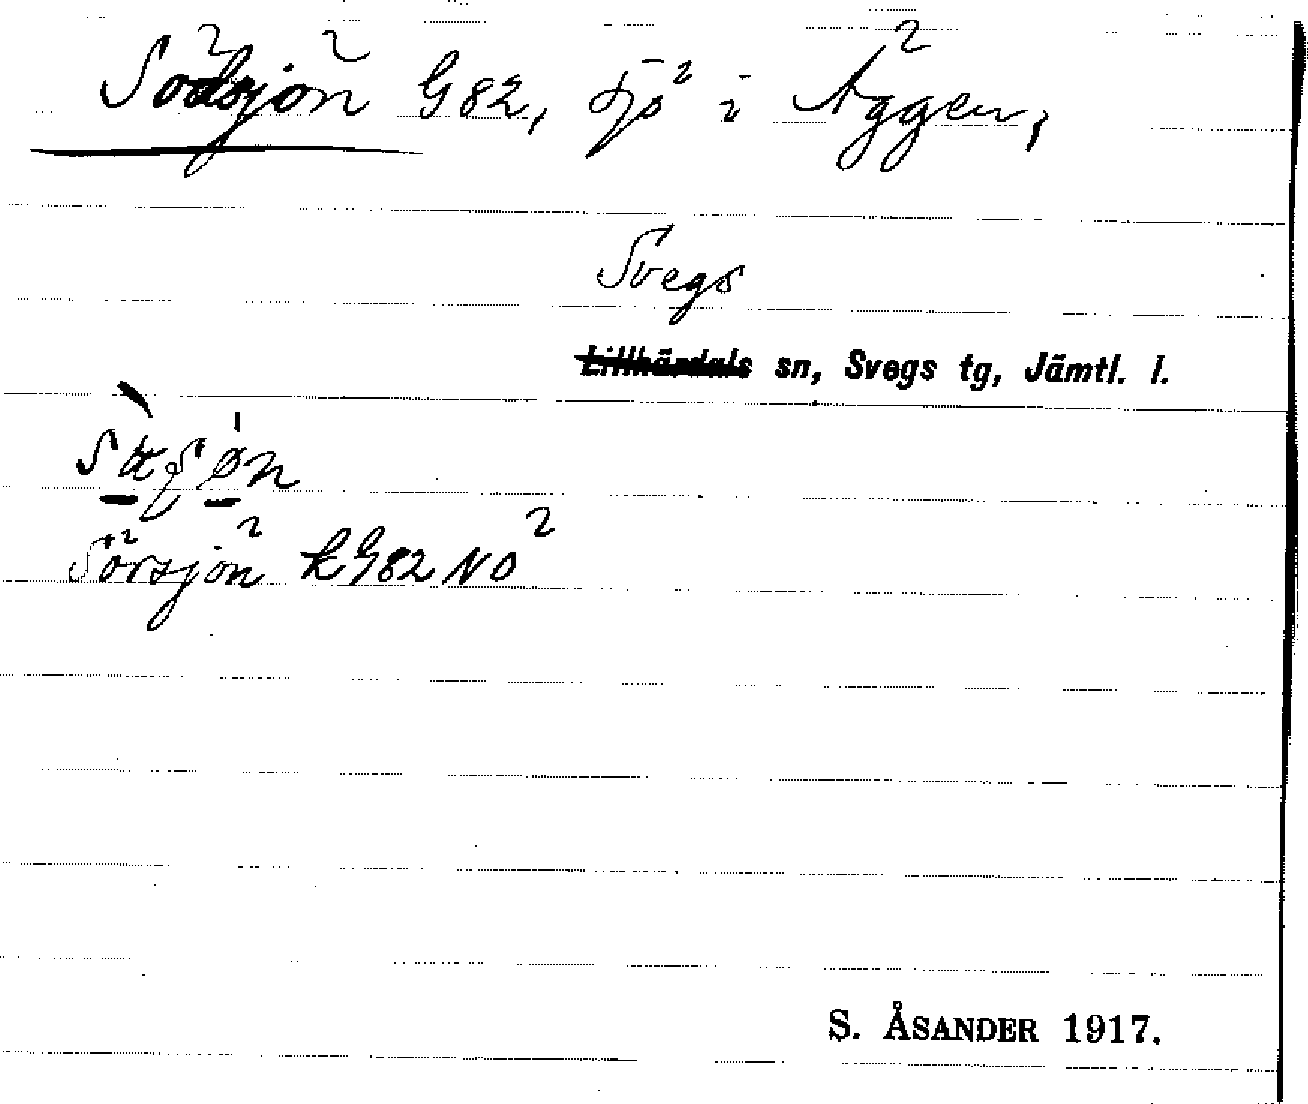 Södsjön G82, sjö i Äggen,
Svegs
Lillhärdals sn, Svegs tg, Jämtl. l.
Sörsjön k G82 NO
S. ÅSANDER 1917.